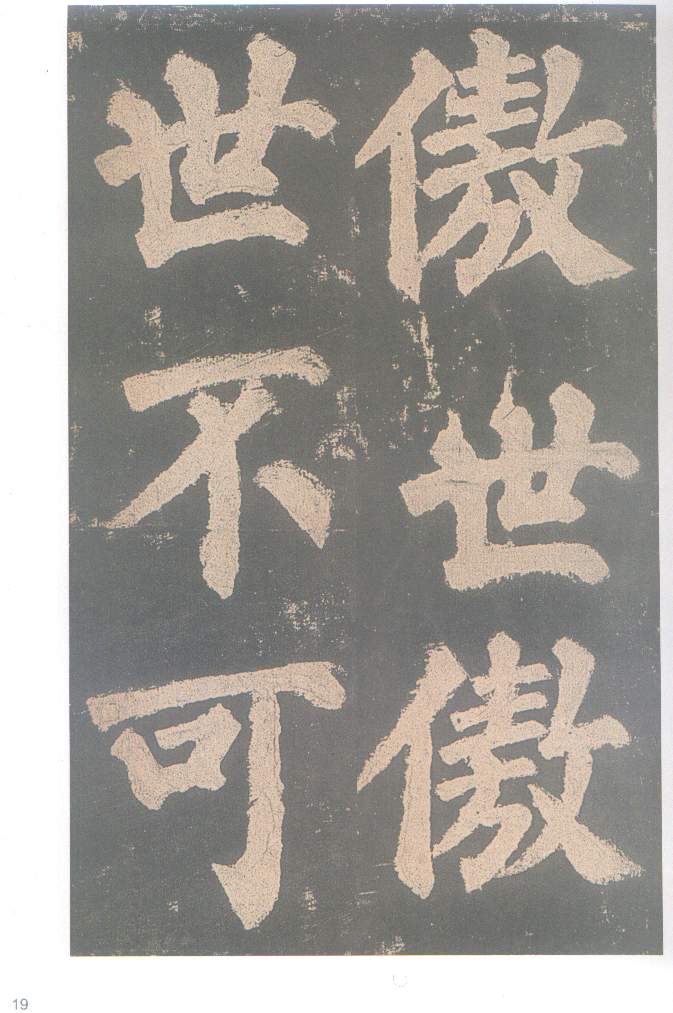 傲世傲
世不可
19